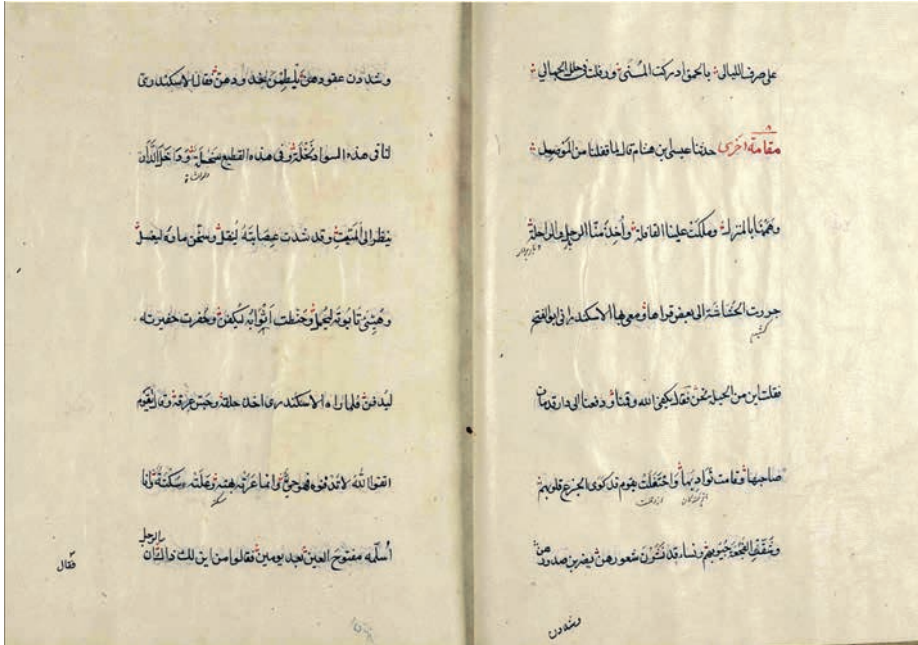 على صرف الليالي بالحمق ادركت المنى ورفلت في حلل الجمال
مقامة اخرى حدثنا عيسى ابن هشام قال لما قفلنا من الموصل
وهممنا بالمنزل وملكت علينا القافلة وأخذ منّا الرحل والراحلة
جررت الحشاشة الى بعض قراها ومعى بها الاسكندرانى ابو الفتح
كشيم
فقلت اين من الحيلة نحن فقال يكفى الله وقنا ودفعنا الى دار قد مات
صاحبها وقامت نوادبها واحتفلت بقوم قد كوى الجزع قلوبهم
وشققت الفجعة جيوبهم ونساء قد نشرن شعورهن يضربن صدورهن
وشددن
وشددن عقودهن يلطمن خدودهن فقال الاسكندرى
لنا فى هذه السواد نخلة وفى هذه القطيع سخلة ودخل الدار
ينظر الى الميت وقد شدت عصابته لينقل وسخن ماؤه ليغسل
وهيئ تابوته ليحمل وخيطت اثوابه ليكفن وحفرت حفيرته
ليدفن فلما راه الاسكندرى اخذ حلقه وجس عرقه وقال يا قوم
اتقوا الله لا تدفنوه فهو حىّ وانما عرته بهتة وعلته سكتة وانا
سكته
أسلّمه مفتوح العين بعد يومين فقالوا من اين لك ذالك
فقال